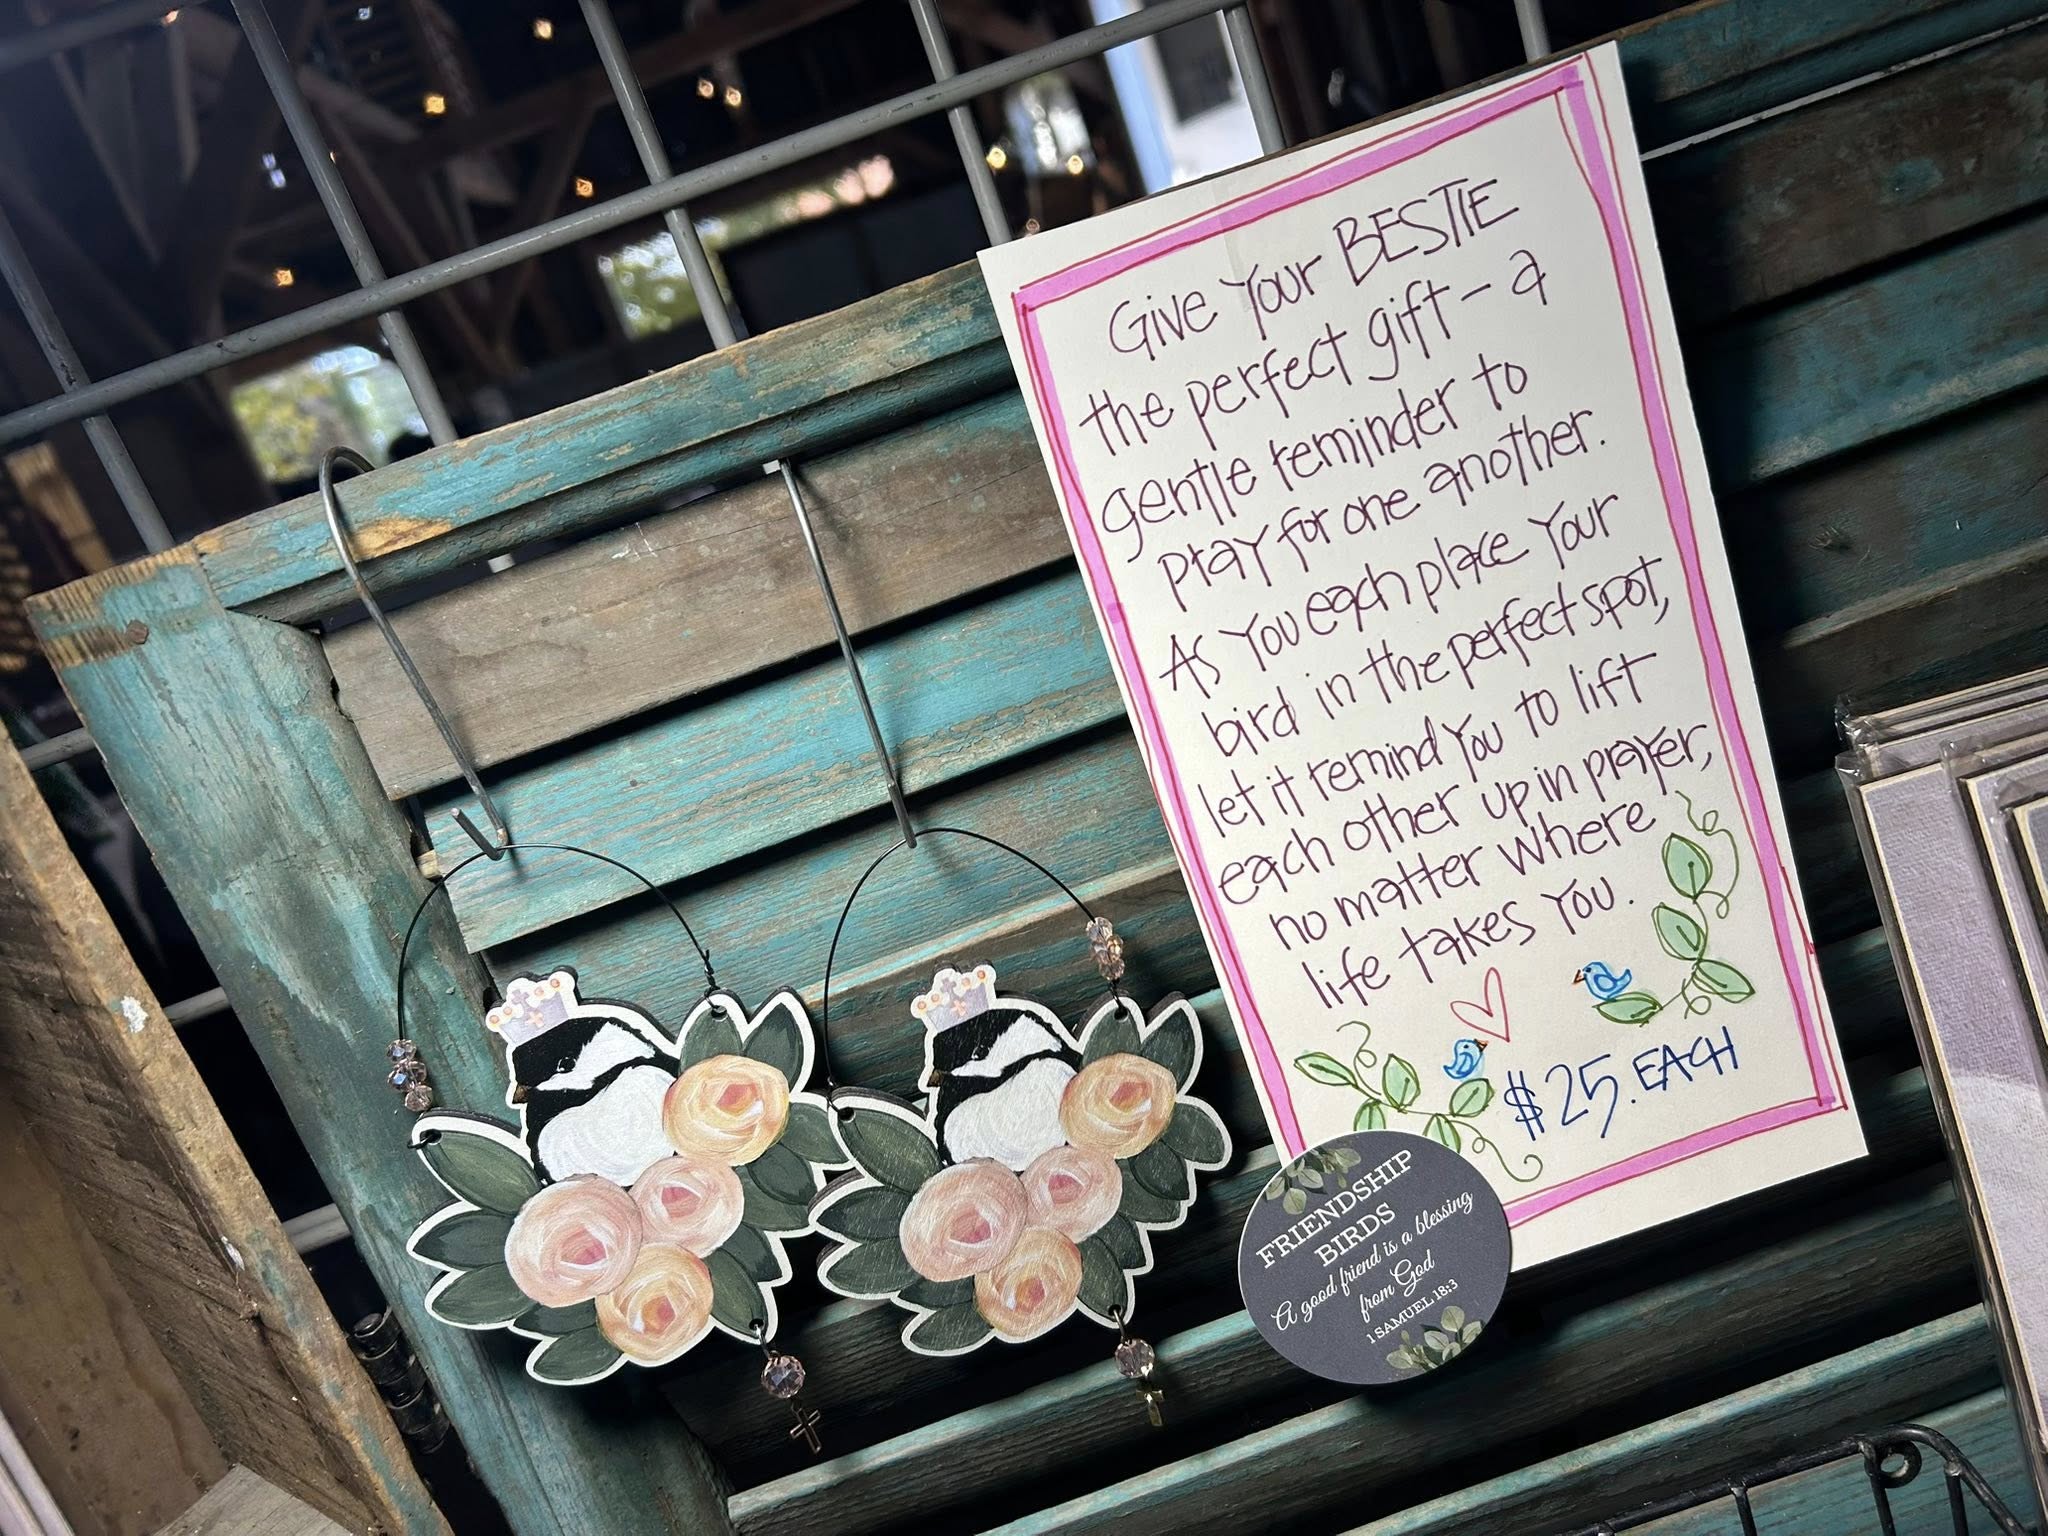 Give Your BESTIE
the perfect gift - a
gentle reminder to
pray for one another.
As You each place Your
bird in the perfect spot,
let it remind You to lift
each other up in prayer,
no matter where
life takes You.
$25. EACH
FRIENDSHIP
BIRDS
A good friend is a blessing
from God
1 SAMUEL 18:3